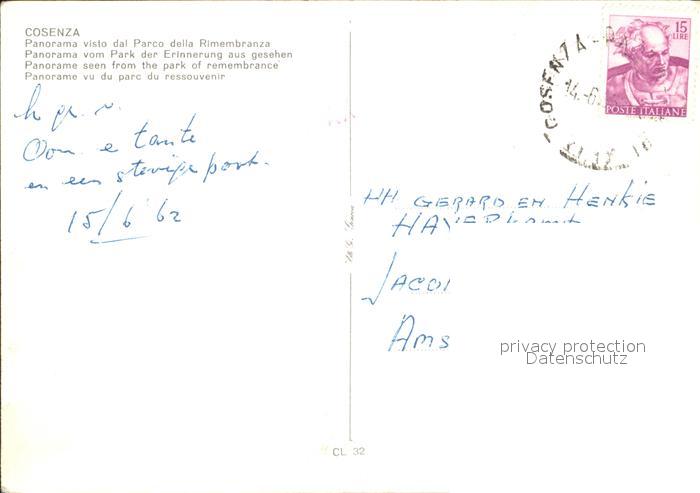 COSENZA
Panorama visto dal Parco della Rimembranza
Panorama vom Park der Erinnerung aus gesehen
Panorame seen from the park of remembrance
Panorame vu du parc du ressouvenir
h. gr. v.
Oom e tante
en een stevige poot.
15/6 '62
15
LIRE
POSTE ITALIANE
COSENZA
14-6
HH GERARD EN HENKIE
JACO
AMS
privacy protection
Datenschutz
CL 32